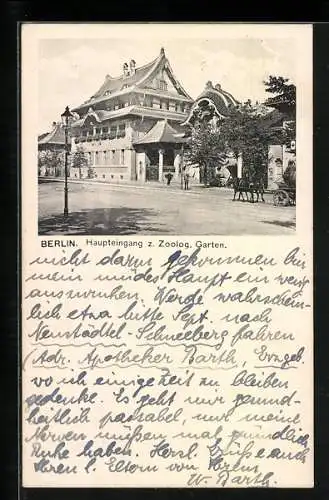 BERLIN. Haupteingang z. Zoolog. Garten.
nicht dazu gekommen bin
mein müdes Haupt ein wenig
auszuruhen. Werde wahrschein-
lich etwa Mitte Sept. nach
Neustädtel-Schneeberg fahren
(Adr. Apotheker Barth, Erzgeb.
wo ich einige Zeit zu bleiben
gedenke. Es geht mir gesund-
heitlich passabel, nur meine
Nerven müßen mal gründlich
Ruhe haben. Herzl. Grüße auch
Ihren l. Eltern von Ihrem
W. Barth.